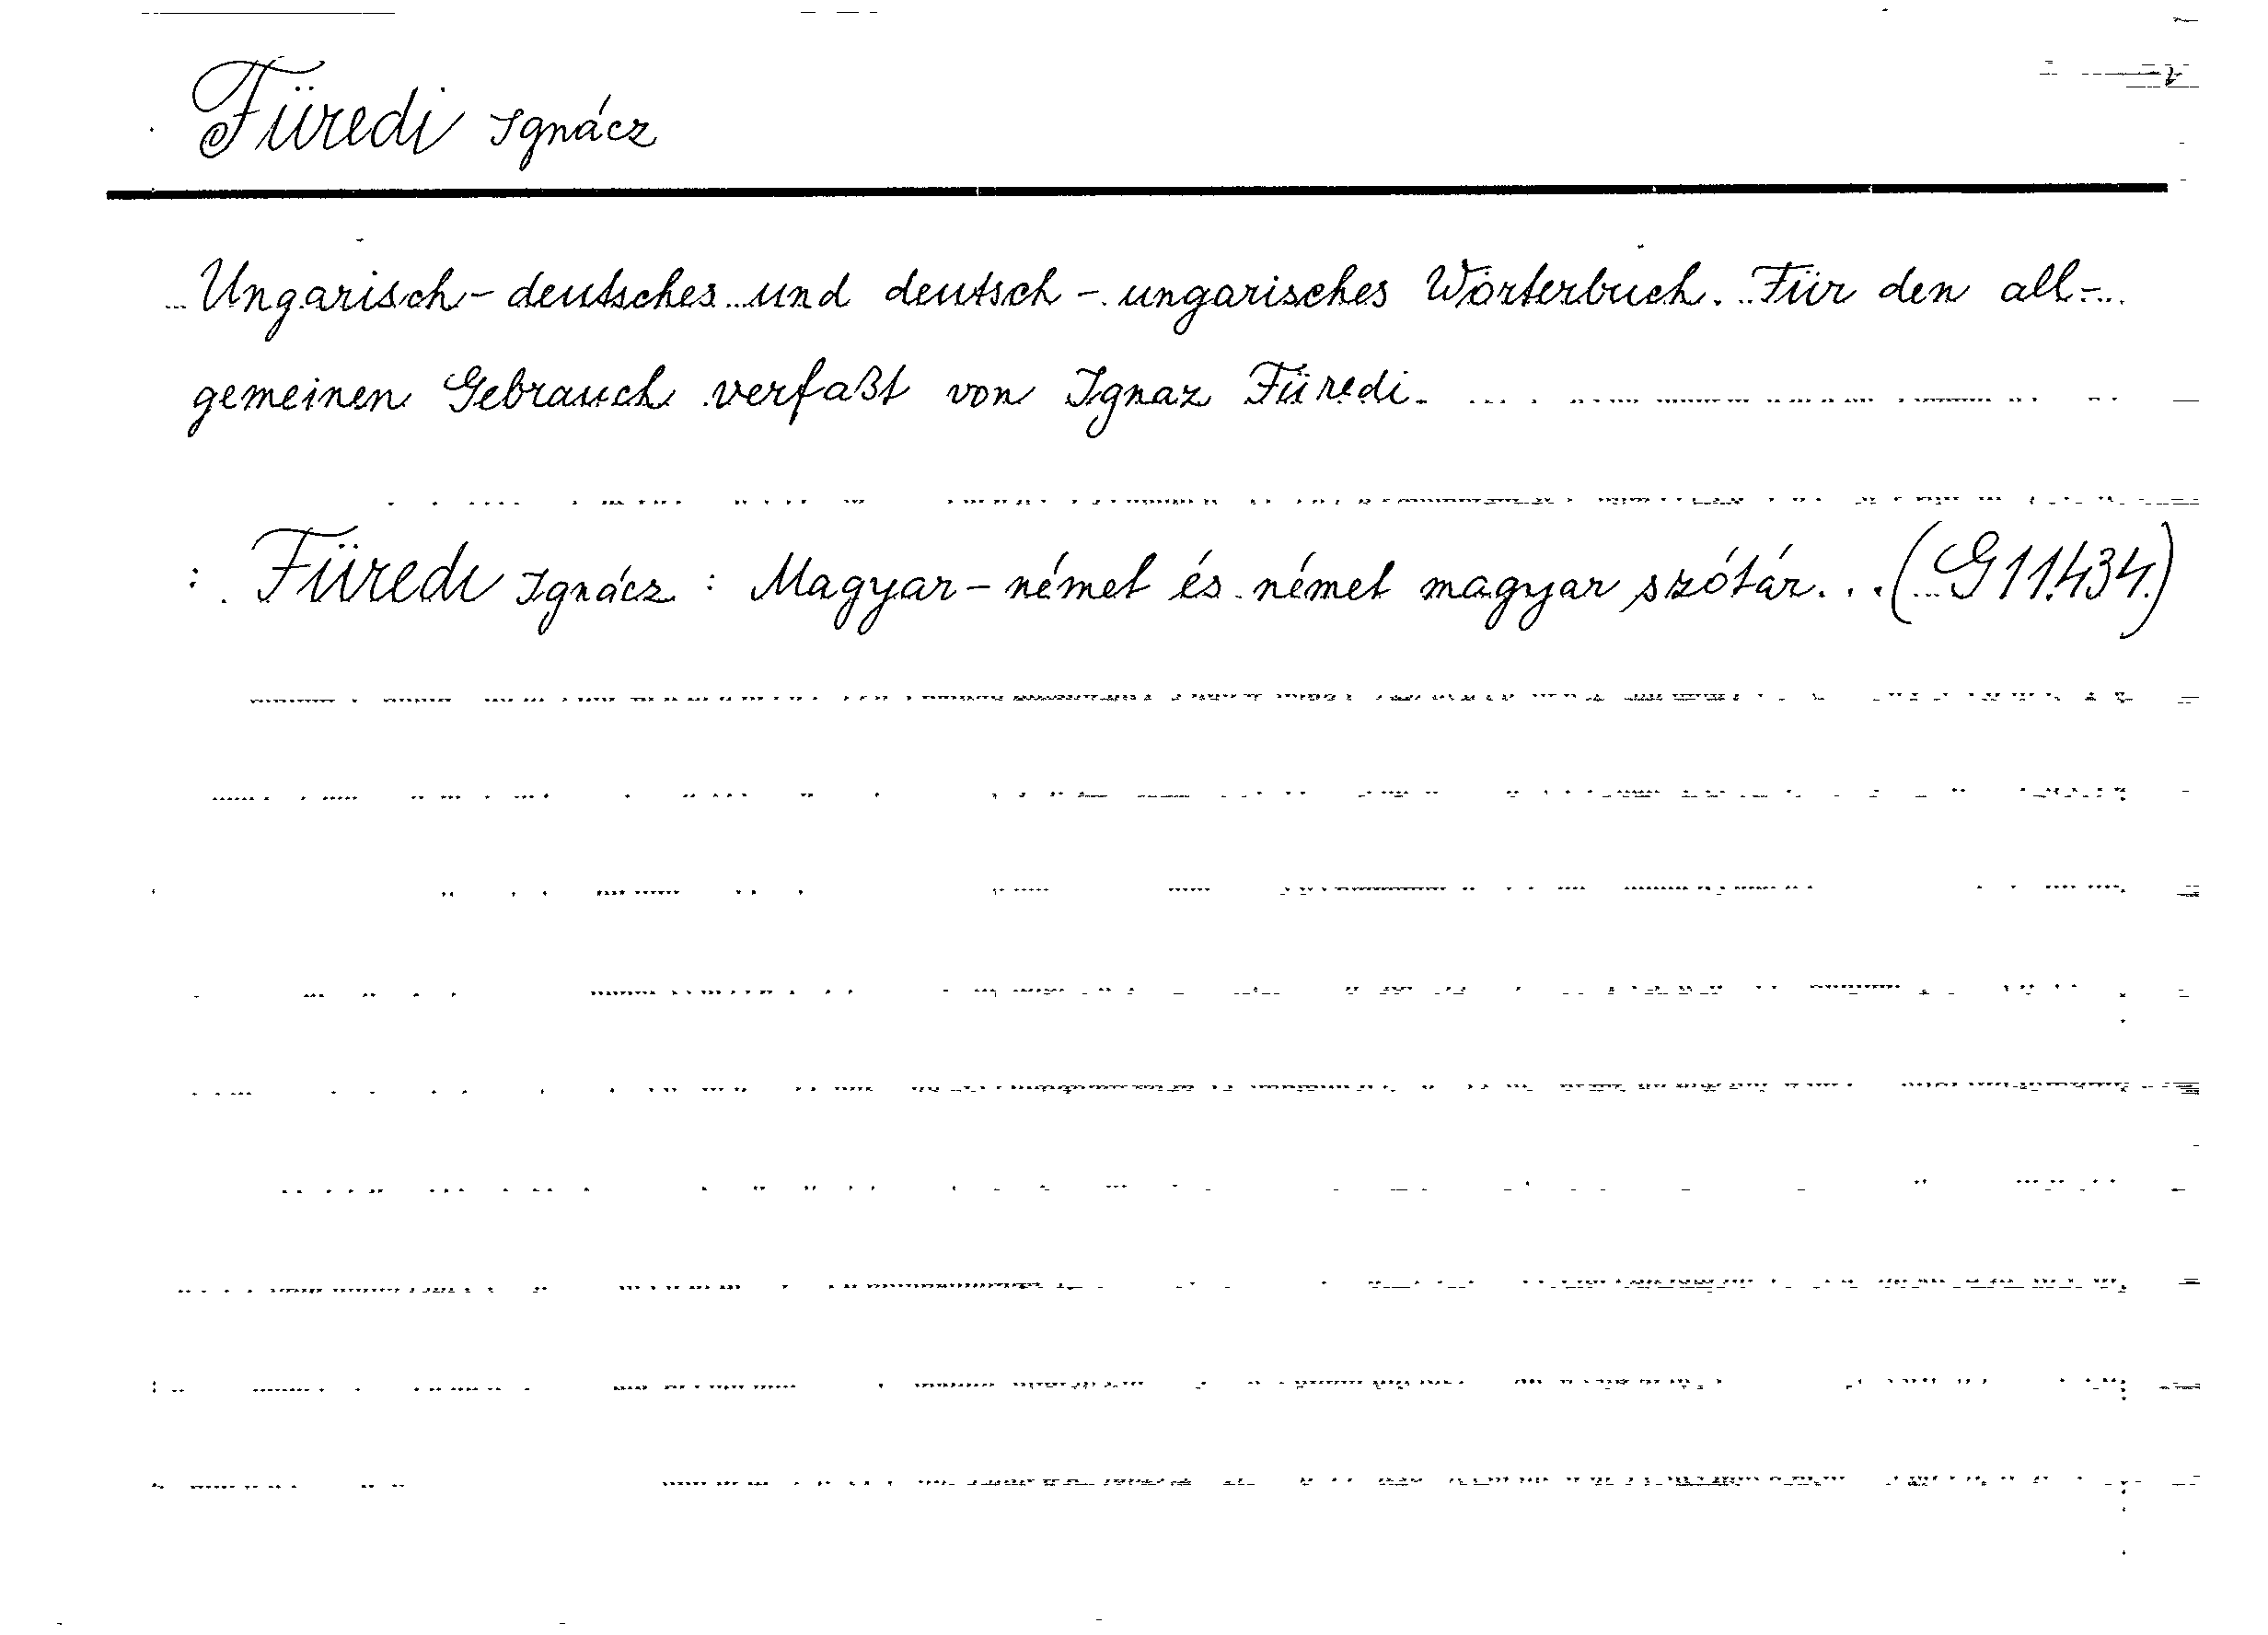 Füredi Ignácz
Ungarisch-deutsches und deutsch-ungarisches Wörterbuch. Für den all-
gemeinen Gebrauch verfaßt von Ignaz Füredi.
: Füredi Ignácz : Magyar-német és német magyar szótár...(G11.434.)